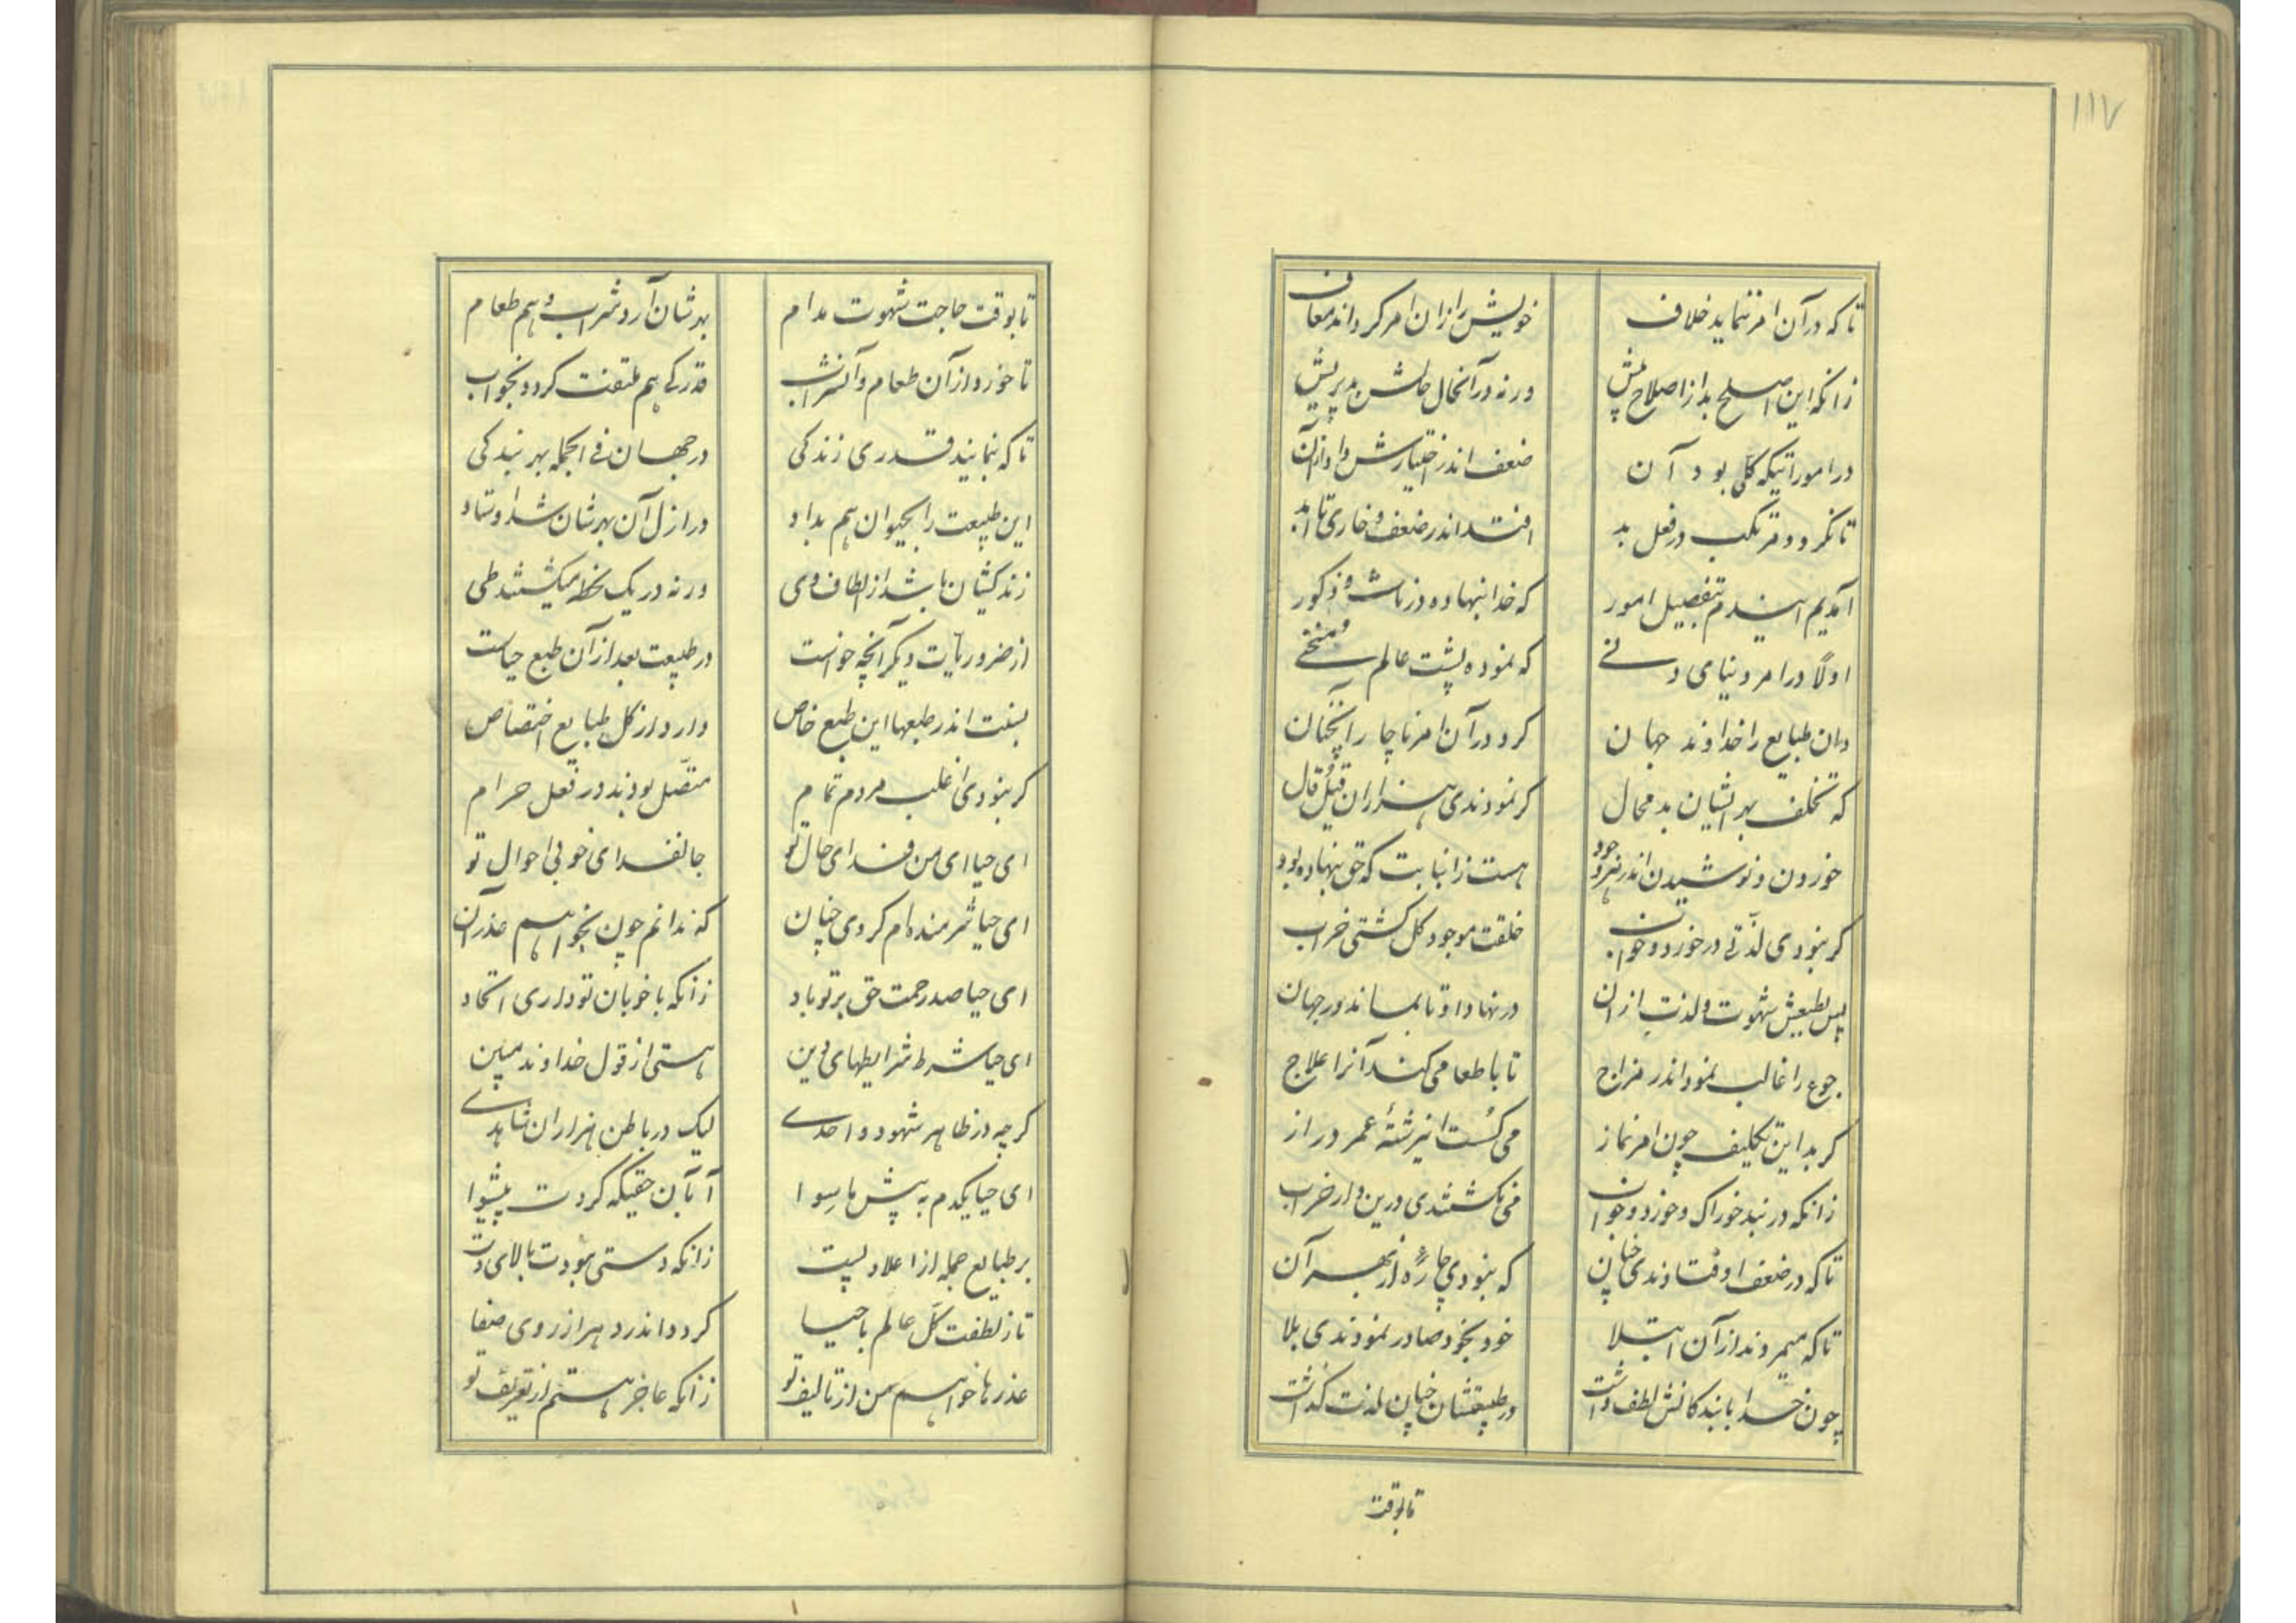 ۱۱۷
تا که در آن امر ننماید خلاف
خویش را زان امر گرداند معاف
زانکه این اصلح بد از اصلاح پیش
ورنه در آنحال حالش بد پریش
در اموراتیکه کلی بود آن
ضعف اندر اختیارش داد از آن
تا نگردد مرتکب در فعل بد
افتد اندر ضعف و خاری تا ابد
آمدیم ایندم بتفصیل امور
که خدا بنهاده در ناث و ذکور
اولاً در امر دنیای دنی
که نموده پشت عالم منحنی
وان طبایع را خداوند جهان
کرد در آن امر ناچار آنچنان
که تخلف بهر ایشان بد محال
گر نمودندی هزاران قیل و قال
خوردن و نوشیدن اندر هر وجود
هست زانبابت که حق بنهاده بود
گر نبودی لذتی در خورد و خواب
خلقت موجود کل گشتی خراب
پس بطبعش شهوت و لذت از آن
در نهاد او تا بماند در جهان
جوع را غالب نمود اندر مزاج
تا با طعامی کند آنرا علاج
گر بد این تکلیف چون امر نماز
می گسست این رشتهٔ عمر دراز
زانکه در بند خوراک و خورد و خواب
می نگشتندی درین دار خراب
تا که در ضعف اوفتادندی چنان
که نبودی چارهٔ از بهر آن
تا که میمردند از آن ابتلا
خود بخود صادر نمودندی بلا
چون خدا با بندگانش لطف داشت
در طبیعتشان چنان لذت گذاشت
تا بوقت
تا بوقت حاجت شهوت مدام
بهرشان آرد شراب و هم طعام
تا خورد از آن طعام و آنشراب
قدرکی هم ملتفت گردد بخواب
تا که بنمایند قدری زندگی
در جهان فی الجمله بهر بندگی
این طبیعت را بحیوان هم بداد
در ازل آن بهرشان شد اوستاد
زندگیشان باشد از الطاف وی
ورنه در یک لحظه میگشتند طی
از ضروریات دیگر آنچه خواست
در طبیعت بعد از آن طبع حیاست
بست اندر طبعها این طبع خاص
دارد از کل طبایع اختصاص
گر نبودی اغلب مردم تمام
متصل بودند در فعل حرام
ای حیا ای من فدای حال تو
جانفدای خوبی احوال تو
ای حیا شرمنده ام کردی چنان
که ندانم چون بخواهم عذر آن
ای حیا صد رحمت حق بر تو باد
زانکه با خوبان تو داری اتحاد
ای حیا شرط شرایطهای دین
هستی از قول خداوند مبین
گرچه در ظاهر شهود واحدی
لیک در باطن هزاران شاهدی
ای حیا یکدم به پیش ما سوا
آ بآن حقیکه کردت پیشوا
بر طبایع جمله از اعلا و پست
زانکه دستی بودت بالای دست
تا ز لطفت کل عالم با حیا
گردد اندر دهر از روی صفا
عذرها خواهم من از تالیف تو
زانکه عاجز هستم از تعریف تو